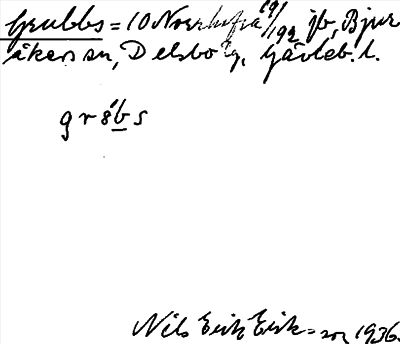 Grubbs = 10 Norrhafra 29/192 jb, Bjur
åkers sn, Delsbo tg, Gävleb. l.
gr8́bs
Nils Erik Eriks=son 1936.